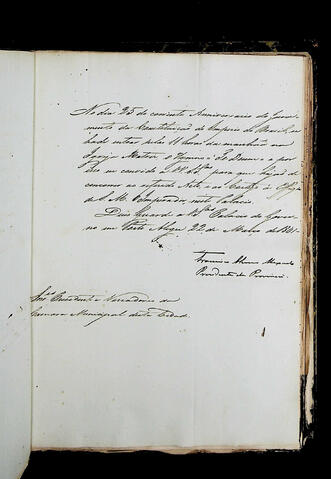 No dia 25 do corrente Anniversario do Jura-
mento da Constituição do Imperio do Brasil, se
ha de entoar pelas 11 horas da manhãa na
Igreja Matriz o Hymno Te Deum e a por
isso eu convido a VV. SSas. para que hajão de
concorrer ao referido e ao Cortejo á Effigie
de S. M. o Imperador neste Palacio.
Deos Guarde a VV. SSas. Palacio do Gover-
no em Porto Alegre 22 de Março de
Francisco
Presidente da Provincia.
Snres. Presidente e Vereadores da
Camara Municipal desta Cidade.